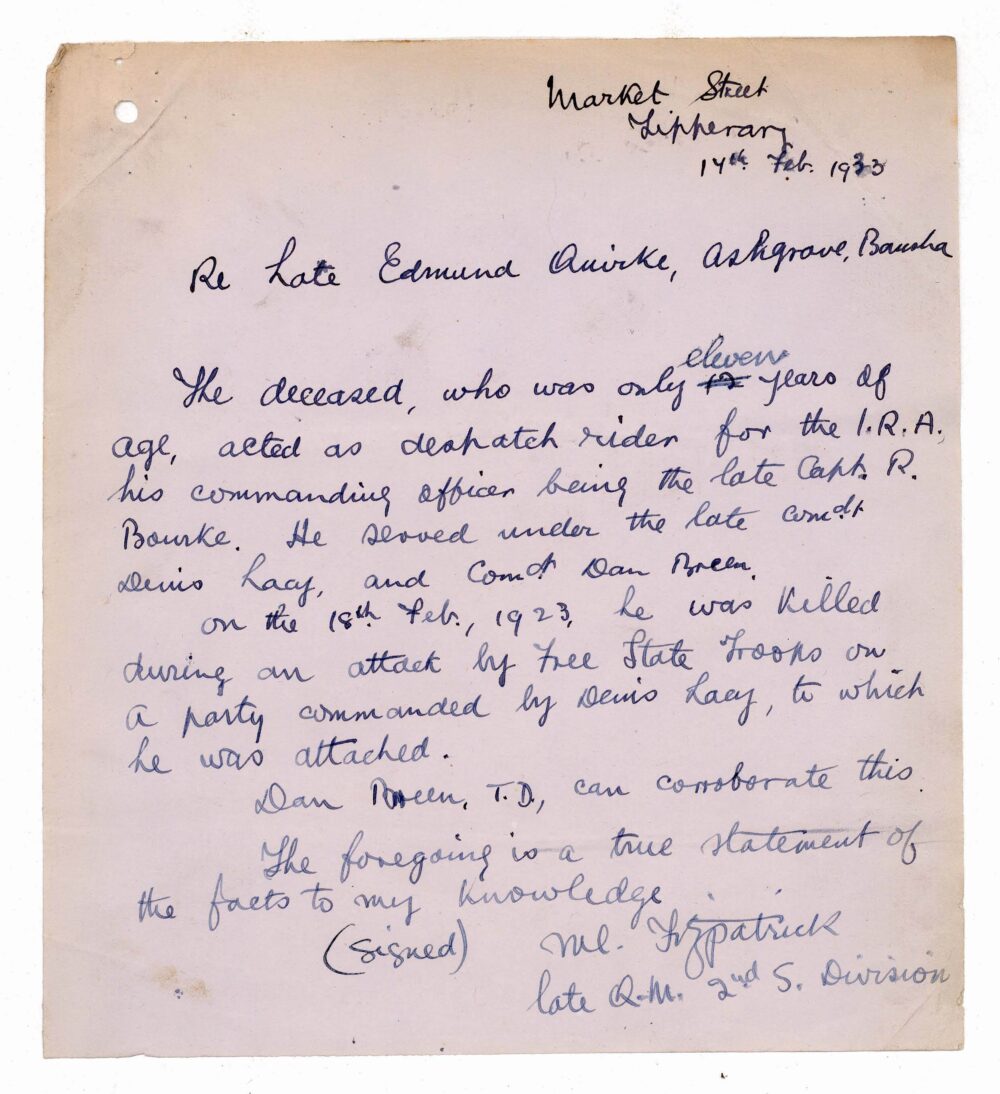 Market Street
Tipperary
14th Feb. 1933
Re Late Edmund Quirke, Ashgrove, Bansha
eleven
The deceased, who was only 12 years of
age, acted as despatch rider for the I.R.A.,
his commanding officer being the late Capt. R.
Bourke. He served under the late Comdt
Denis Lacy, and Comdt Dan Breen.
On the 18th Feb., 1923, he was killed
during an attack by Free State Troops on
a party commanded by Denis Lacy, to which
he was attached.
Dan Breen, T.D., can corroborate this.
The foregoing is a true statement of
the facts to my knowledge.
(signed) Ml. Fitzpatrick
late Q.M. 2nd S. Division